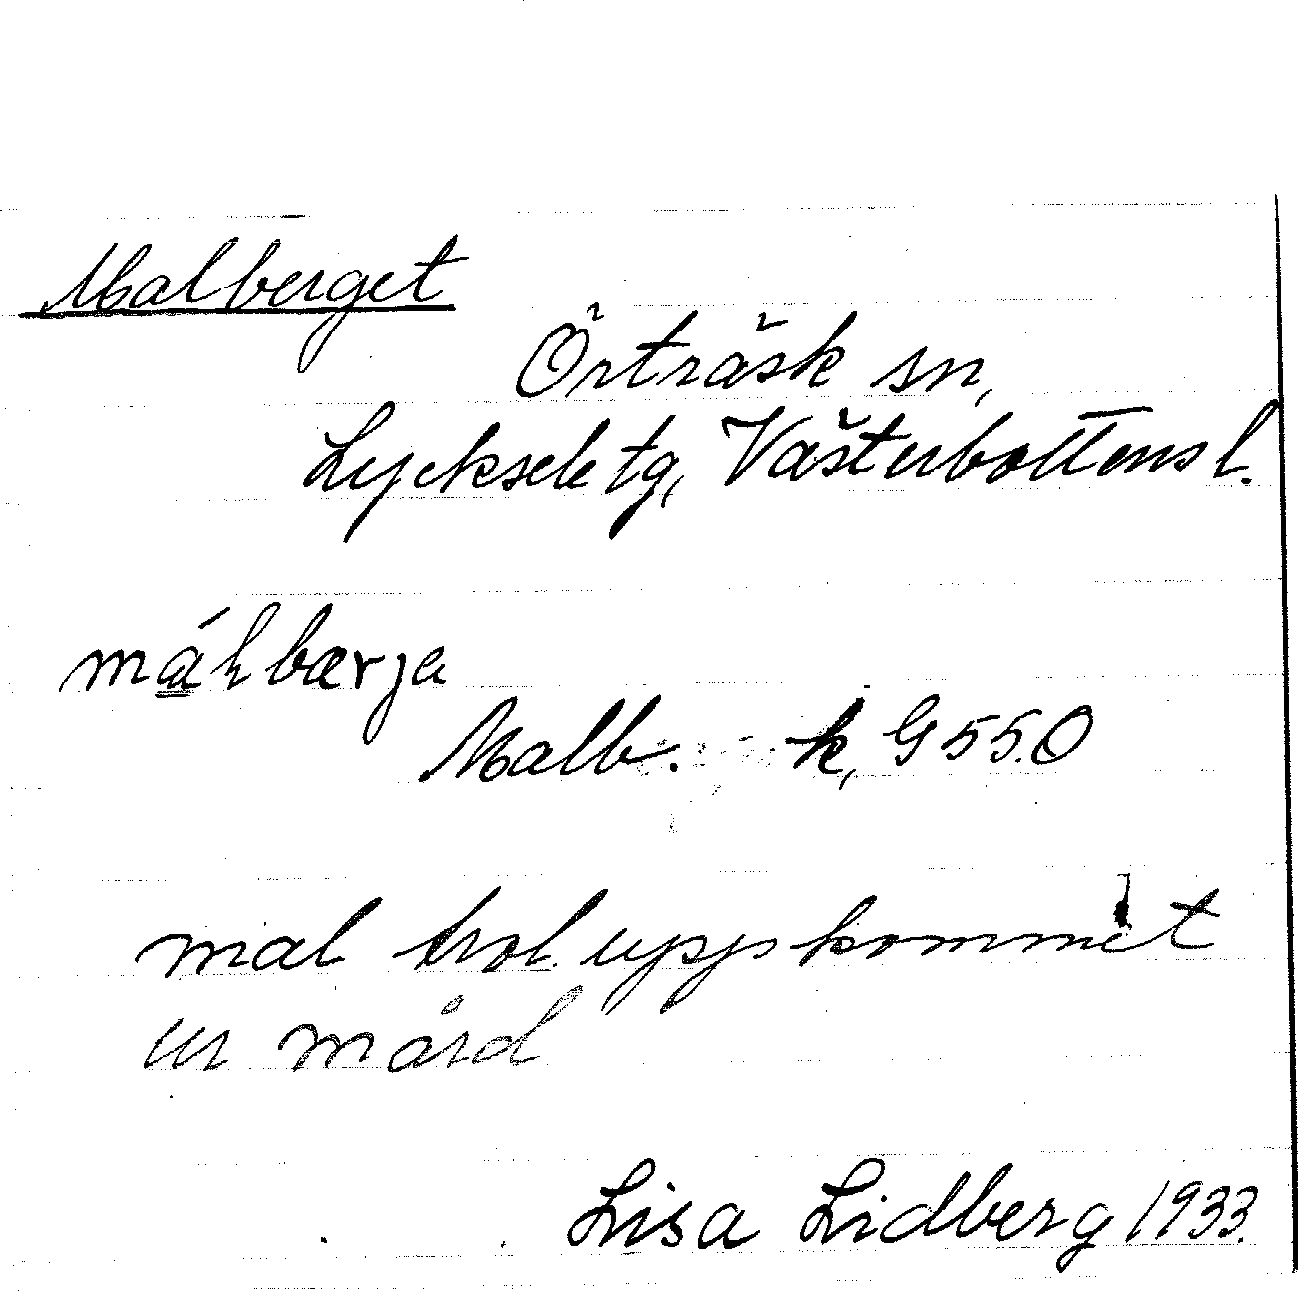 Malberget
Örträsk sn,
Lycksele tg, Västerbottens l.
máhbærja
Malb. k, G 55.0
mal trol. uppkommit
ur mård
Lisa Lidberg 1933.